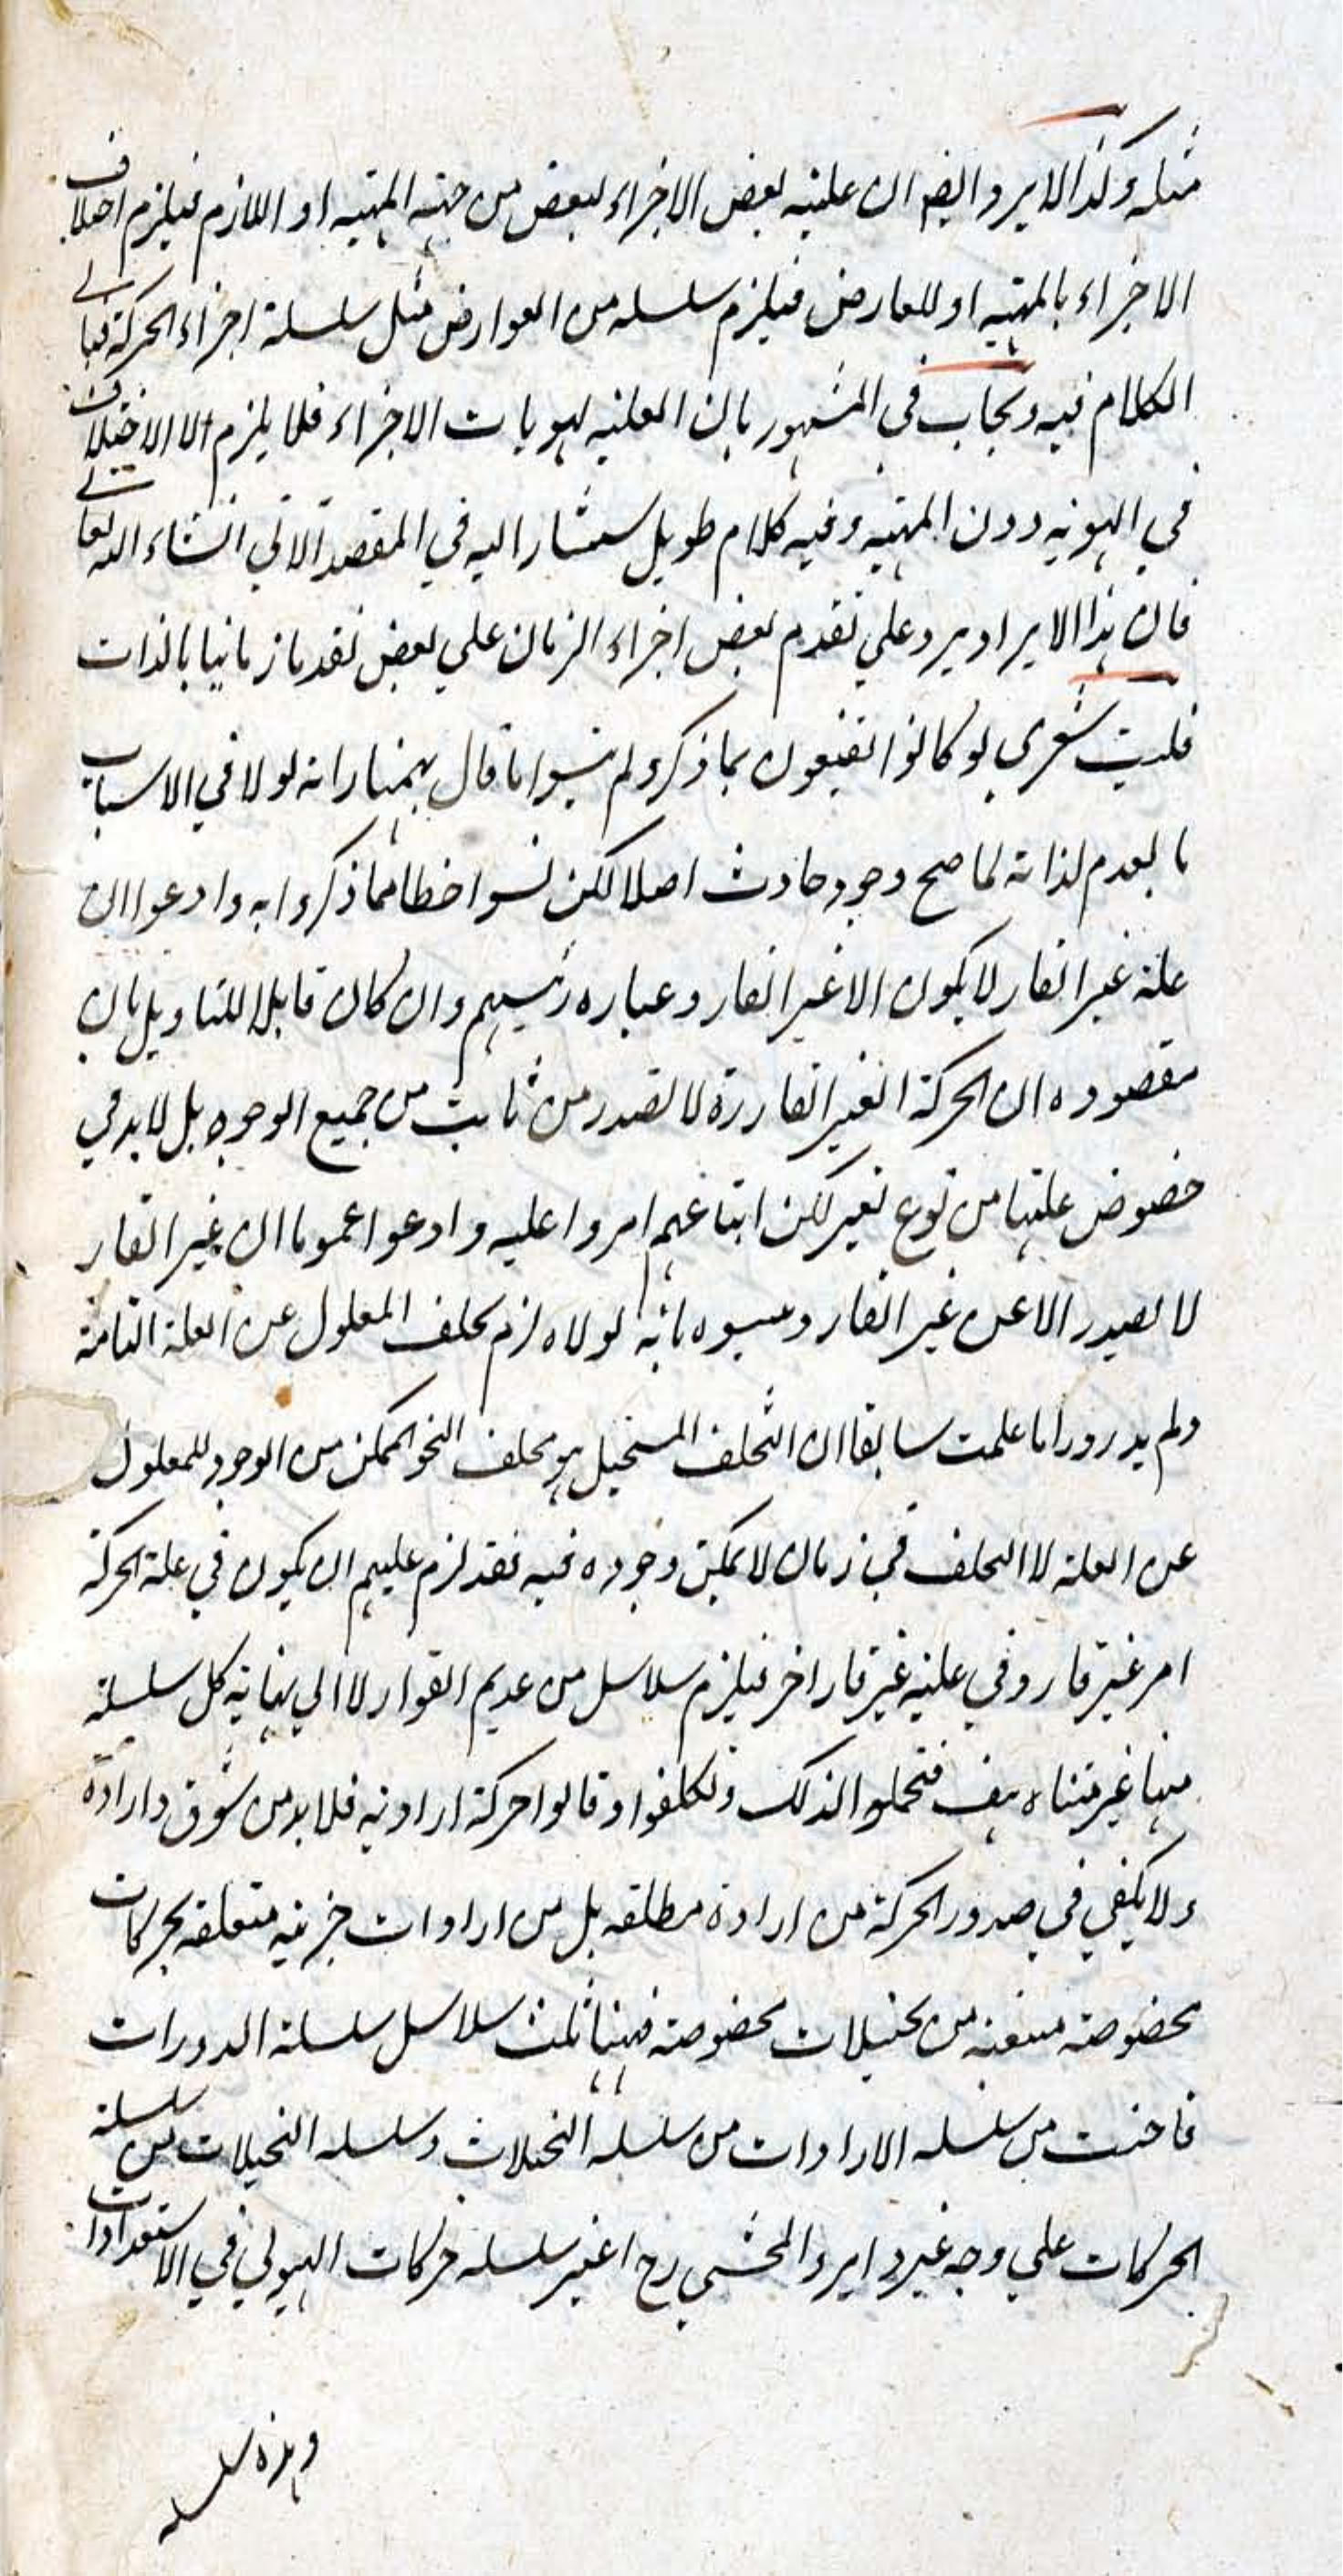 مثله وكذا لا يرد وايضا ان علية بعض الاجزاء لبعض من جهة المهية او اللازم فيلزم اختلاف
الاجزاء بالمهية او للعارض فيلزم سلسله من العوارض مثل سلسلة اجزاء الحركة فياتي
الكلام فيه ويجاب في المشهور بان العلية لهويات الاجزاء فلا يلزم الا الاختلاف
في الهوية دون المهية وفيه كلام طويل ستشار اليه في المقصد الاتي انشاء الله تعالى
فان هذا الايراد يرد على تقدم بعض اجزاء الزمان علي بعض تقدما زمانيا بالذات
فليت شعري لو كانوا يقنعون بما ذكر ولم ينسوا ما قال بهمنيار انه لولا في الاسباب
ما يعدم لذاته لما صح وجود حادث اصلا لكن نسوا حظا مما ذكروا به وادعوا ان
علة غير القار لا يكون الا غير القار وعباره رئيسهم وان كان قابلا للتاويل بان
مقصوده ان الحركة الغير القارة لا تصدر من ثابت من جميع الوجوه بل لا بد في
خصوص علتها من نوع تغير لكن اتباعهم امروا عليه وادعوا عموما ان غير القار
لا يصدر الا عن غير القار و بانه لولاه لزم تخلف المعلول عن العلة التامة
ولم يدروا ما علمت سابقا ان التخلف المستحيل هو تخلف النحو الممكن من الوجود للمعلول
عن العلة لا التخلف في زمان لا يمكن وجوده فيه فقد لزم عليهم ان يكون في علة الحركة
امر غير قار وفي علية غير قار اخر فيلزم سلاسل من عديم القرار لا الي نهاية كل سلسلة
منها غير متناه هف فتحملوا لذلك وتكلفوا وقالوا حركة ارادية فلا بد من شوق وارادة
ولا يكفي في صدور الحركة من ارادة مطلقه بل من ارادات جزئية متعلقه بحركات
مخصوصة منبعثة من تخيلات مخصوصة فههنا ثلث سلاسل سلسلة الدورات
فاضت من سلسله الارادات من سلسله التخيلات وسلسله التخيلات من سلسلة
الحركات علي وجه غير دائر والمحشي رح اعتبر سلسله حركات الهيولي في الاستعدادات
وهذه سلسله